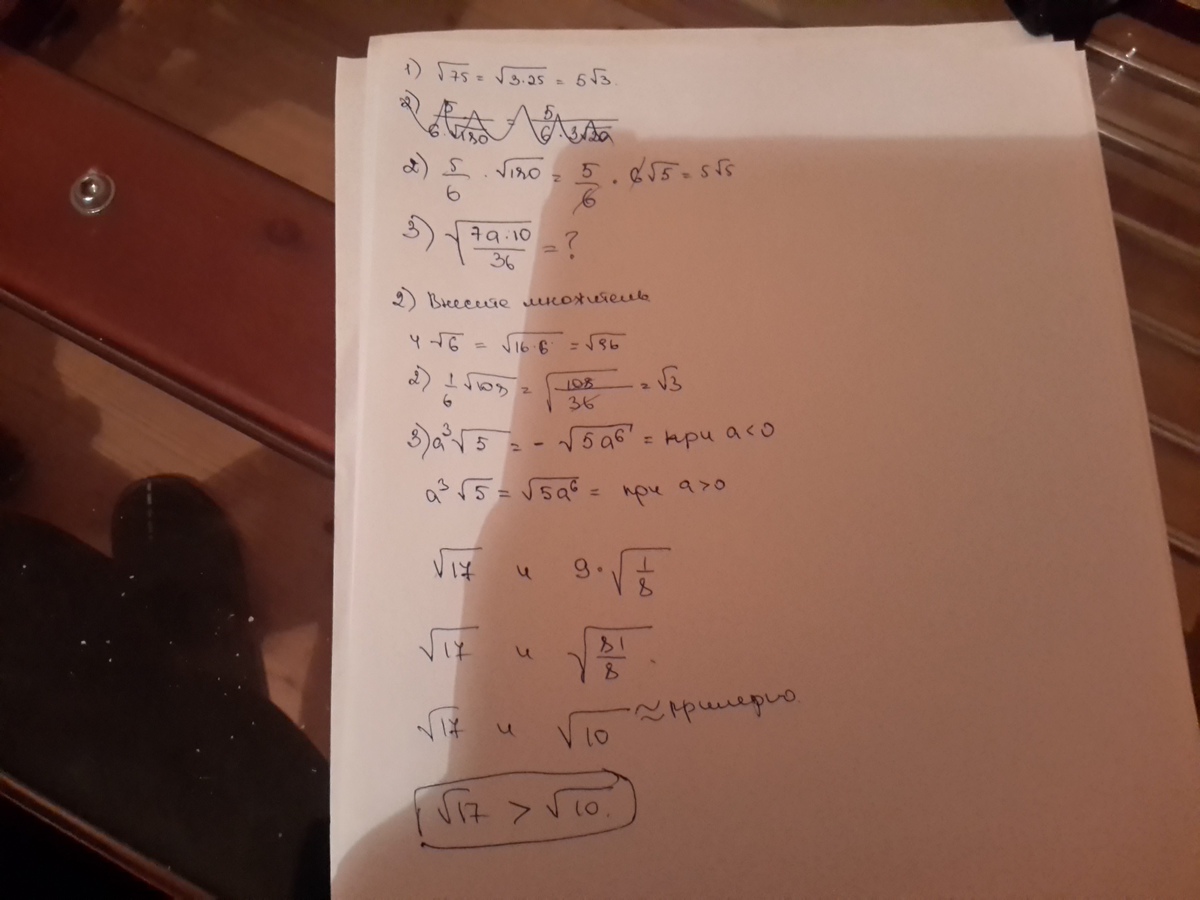 1) √75 = √3·25 = 5√3.
2) 5/6 · √180 = 5/6 · 6√5 = 5√5
3) √(7a·10/36) = ?
2) Внесите множитель
4√6 = √16·6 = √96
2) 1/6 √108 = √(108/36) = √3
3) a³√5 = - √5a⁶ = при a<0
a³√5 = √5a⁶ = при a>0
√17 и 9·√(1/8)
√17 и √(81/8).
√17 и √10 ≈ примерно
√17 > √10.